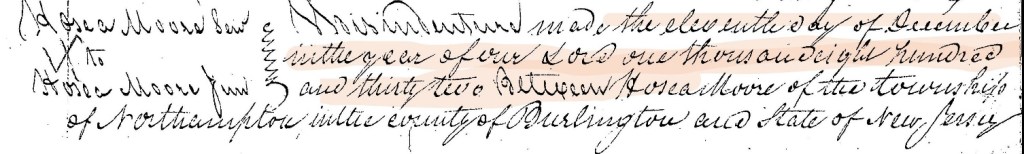 Hosea Moore Sen This indenture made the eleventh day of December
to in the year of our Lord one thousand eight hundred
Hosea Moore Jun and thirty two Between Hosea Moore of the township
of Northampton in the county of Burlington and State of New Jersey